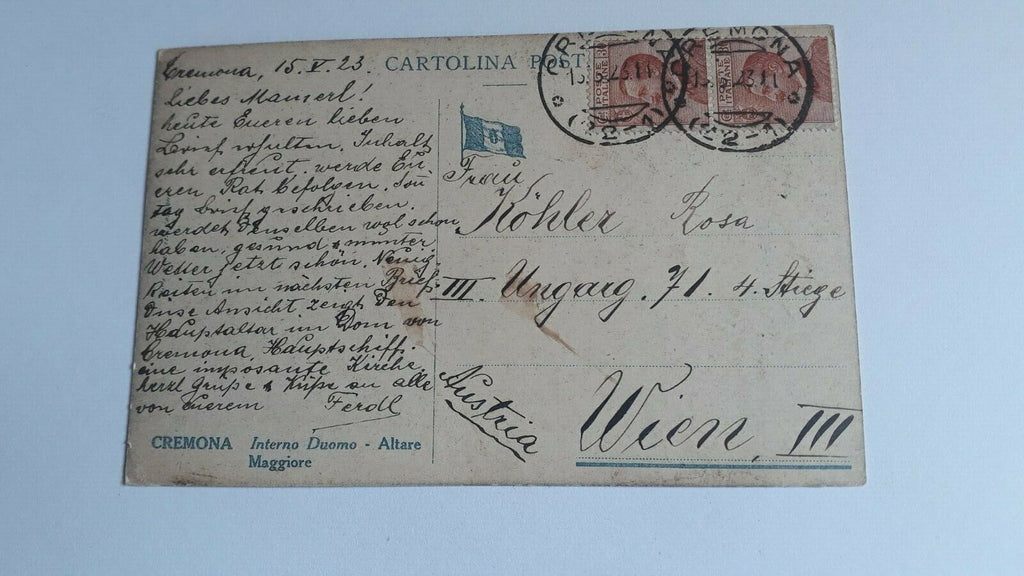 Cremona, 15.V.23.
liebes Mamerl!
heute Eueren lieben
Brief erhalten. Inhalt
sehr erfreut. werde Eu
eren Rat befolgen. Son
tag Brief geschrieben.
werdet denselben wol schon
haben. gesund & munter
Wetter jetzt schön. Neuig-
keiten im nächsten Brief.
Ansicht zeigt den
Hauptaltar im Dom von
Cremona, Hauptschiff.
eine imposante Kirche
herzl Grüße & Küße an alle
von Euerem Ferdl
CREMONA Interno Duomo - Altare
Maggiore
CARTOLINA POST
CREMONA
15. 23.11
(42-1)
POSTE ITALIANE
CREMONA
23.11
(42-1)
POSTE ITALIANE
Frau
Köhler Rosa
III. Ungarg. 71. 4. Stiege
Austria
Wien, III